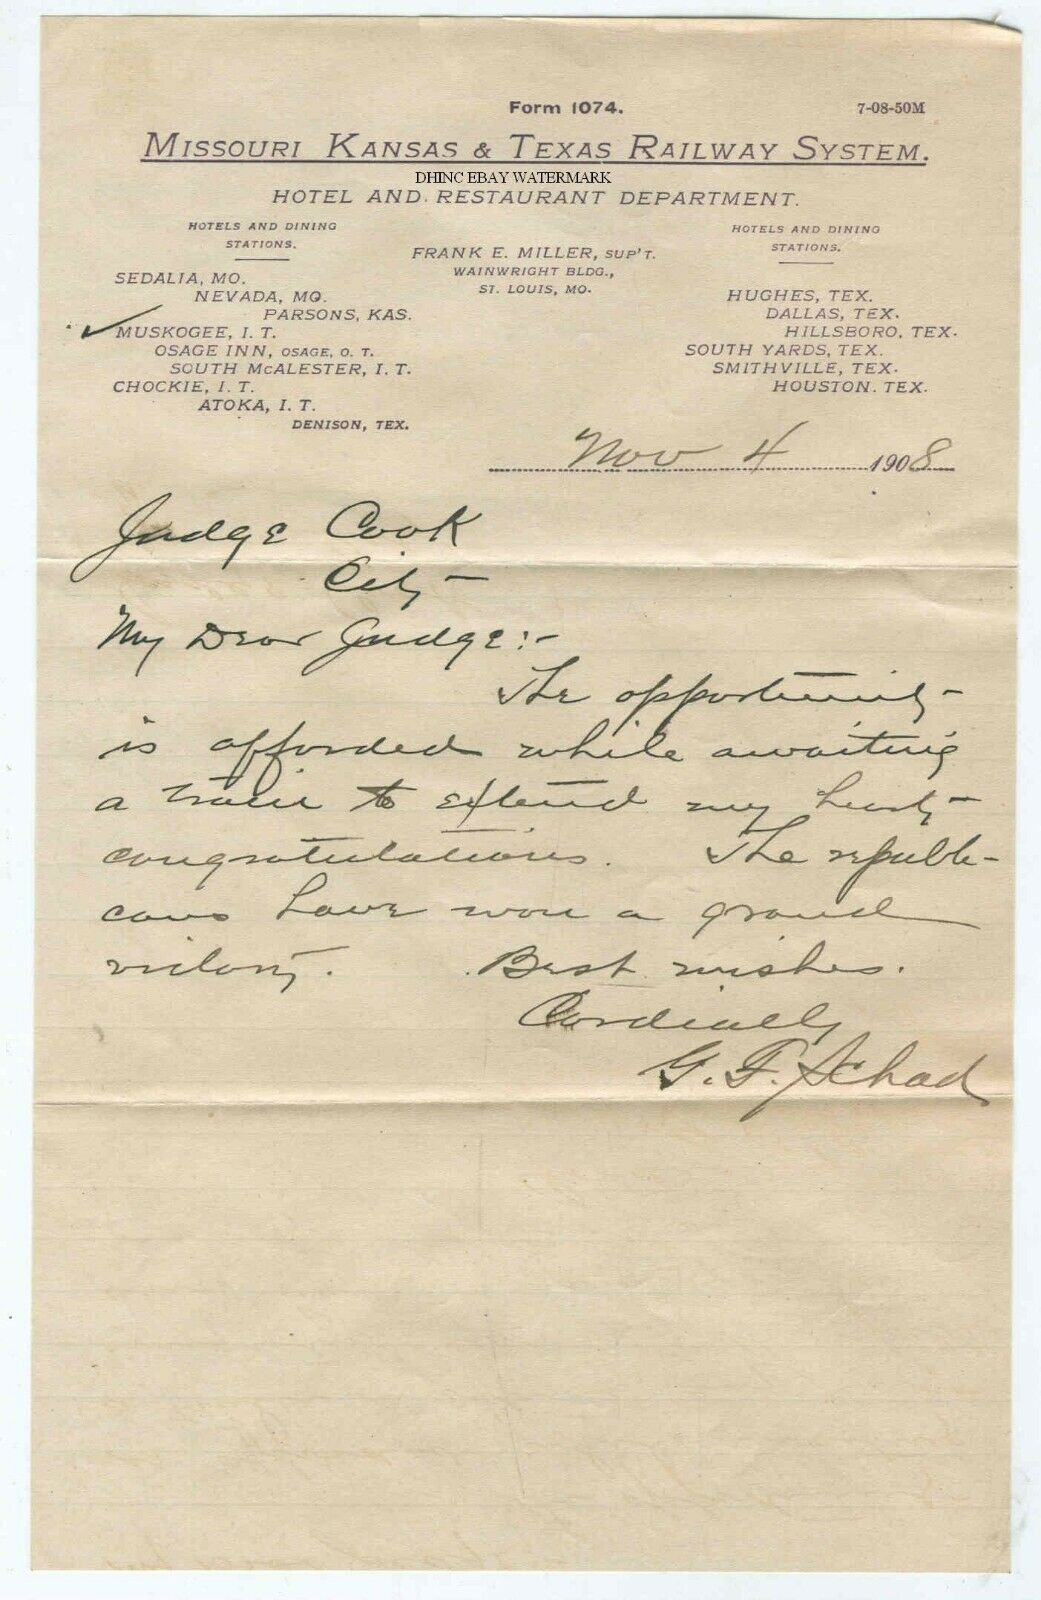 Form 1074.
7-08-50M
MISSOURI KANSAS & TEXAS RAILWAY SYSTEM.
DHINC EBAY WATERMARK
HOTEL AND RESTAURANT DEPARTMENT.
HOTELS AND DINING
STATIONS.
SEDALIA, MO.
NEVADA, MO.
PARSONS, KAS.
✓ MUSKOGEE, I. T.
OSAGE INN, OSAGE, O. T.
SOUTH McALESTER, I. T.
CHOCKIE, I. T.
ATOKA, I. T.
DENISON, TEX.
FRANK E. MILLER, SUP'T.
WAINWRIGHT BLDG.,
ST. LOUIS, MO.
HOTELS AND DINING
STATIONS.
HUGHES, TEX.
DALLAS, TEX.
HILLSBORO, TEX.
SOUTH YARDS, TEX.
SMITHVILLE, TEX.
HOUSTON. TEX.
Nov 4 1908
Judge Cook
City –
My Dear Judge:-
The opportunity
is afforded while awaiting
a train to extend my hearty
congratulations. The republi-
cans have won a grand
victory. Best wishes.
Cordially
G. F. Schad